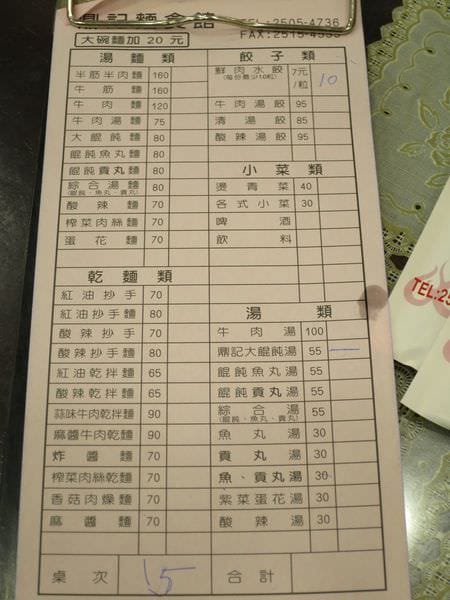 鼎記麵食館 TEL:2505-4736
大碗麵加 20 元 FAX:2515-
湯麵類
半筋半肉麵 160
牛筋麵 160
牛肉麵 120
牛肉湯麵 75
大餛飩麵 80
餛飩魚丸麵 80
餛飩貢丸麵 80
綜合湯麵 80
(餛飩、魚丸、貢丸)
酸辣麵 70
榨菜肉絲麵 70
蛋花麵 70
乾麵類
紅油抄手 70
紅油抄手麵 80
酸辣抄手 70
酸辣抄手麵 80
紅油乾拌麵 65
酸辣乾拌麵 65
蒜味牛肉乾拌麵 90
麻醬牛肉乾拌麵 90
炸醬麵 70
榨菜肉絲乾麵 70
香菇肉燥麵 70
麻醬麵 70
餃子類
鮮肉水餃 7元/粒 10
(每份最少10粒)
牛肉湯餃 95
清湯餃 85
酸辣湯餃 95
小菜類
燙青菜 40
各式小菜 30
啤酒
飲料
湯類
牛肉湯 100
鼎記大餛飩湯 55 一
餛飩魚丸湯 55
餛飩貢丸湯 55
綜合湯 55
(餛飩、魚丸、貢丸)
魚丸湯 30
貢丸湯 30
魚、貢丸湯 30
紫菜蛋花湯 30
酸辣湯 30
桌次 15 合計
TEL:25